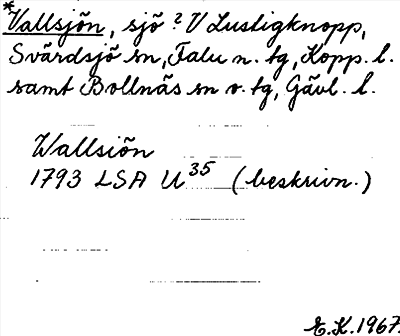 *Vallsjön, sjö ? V Lustigknopp,
Svärdsjö sn, Falu n. tg, Kopp. l.
samt Bollnäs sn v. tg, Gävl. l.
Wallsiön
1793 LSA U³⁵ (beskrivn.)
E.K. 1967.